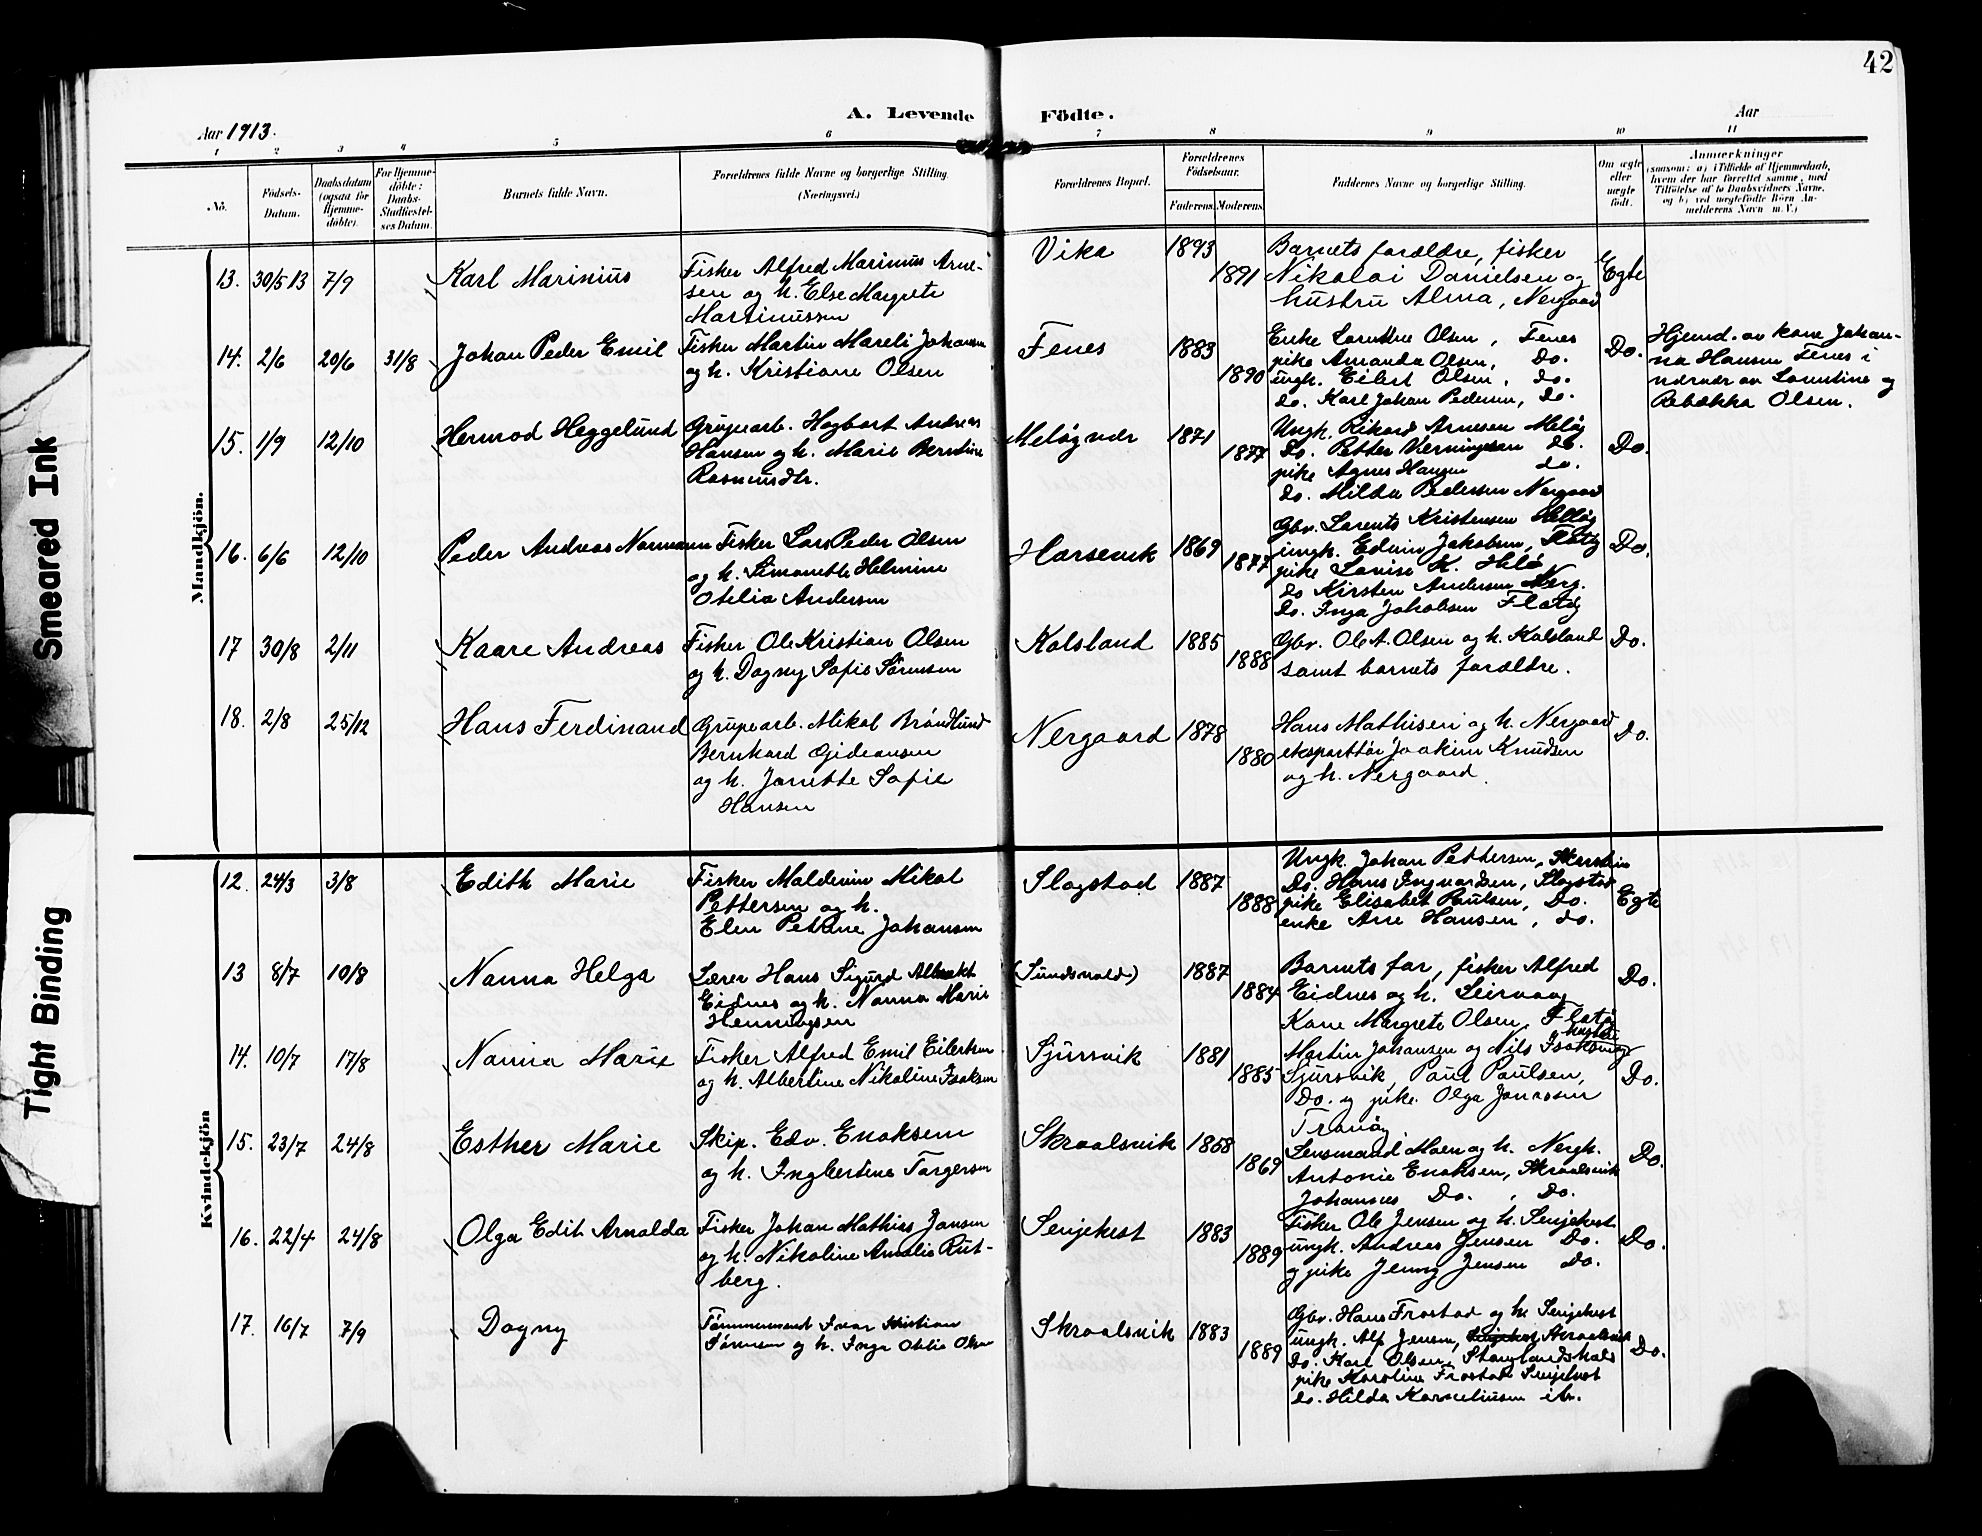 42
A. Levende Födte.
Aar 1913.
Aar
1 2 3 4 5 6 7 8 9 10 11
No.
Födsels-Datum.
Daabsdatum (ogsaa for Hjemme-döbte).
For Hjemme-döbte: Daabs-Stadfæstel-ses Datum.
Barnets fulde Navn.
Forældrenes fulde Navne og borgerlige Stilling. (Næringsvei.)
Forældrenes Bopæl.
Forældrenes Födselsaar.
Faderens. Moderens.
Faddernes Navne og borgerlige Stilling.
Om ægte eller uægte födt.
Anmærkninger
(saasom: a) i Tilfælde af Hjemmedaab, hvem der har forrettet samme, med Tilföielse af to Daabsvidners Navne, og b) ved uægtefödte Börn Anmelderens Navn m. V.)
Smeared Ink
Tight Binding
Mandkjön.
13. 30/5 13 7/9 Karl Marinius
Fisker Alfred Marinus Arne-
sen og h. Else Margrete
Martinussen
Vika 1893 1891
Barnets forældre, fisker
Nikolai Danielsen og
hustru Alma, Nergaard
Egte
14. 2/6 20/6 31/8 Johan Peder Emil
Fisker Martin Mareli Johansen
og h. Kristiane Olsen
Fenes 1883 1890
Enke Olsen, Fenes
pike Amanda Olsen, Do.
ungk. Eilert Olsen, do.
do. Karl Johan Pedersen, do.
Do.
Hjemd. av kone Johan-
na Hansen Fenes i
nærvær av Lorentine og
Rebække Olsen.
15. 1/9 12/10 Hermod Heggelund
Grupearb. Hagbart Andreas
Hansen og h. Marie Berntine
Rasmusdtr.
Meløyvær 1871 1877
Ungk. Rikard Arnesen Meløy
Do. Petter Do.
pike Agnes Hansen do.
do. Milda Pedersen Nergaard
Do.
16. 6/6 12/10 Peder Andreas Normann
Fisker Lars Peder Olsen
og h. Simonette Helmine
Otelie Andersen
Harsevik 1869 1877
Gbr. Lorents Kristensen Meløy
ungk. Edvin Jakobsen, Flatøy
pike Lovise K.
do Kirsten Andersen Nerg.
do. Inga Jakobsen Flatøy
Do.
17 30/8 2/11 Kaare Andreas
Fisker Ole Kristian Olsen
og h. Dagny Sofie Sørensen
Kalsland 1885 1888
Gbr. Ole A. Olsen og h. Kalsland
samt barnets forældre.
Do.
18. 2/8 25/12 Hans Ferdinand
Grupearb. Mikal Brøndlund
Bernhard Gideonsen
og h. Janette Sofie
Hansen
Nergaard 1878 1880
Hans Mathisen og h. Nergaard
ekspartør Joakim Knudsen
og h. Nergaard.
Do.
Kvindekjön
12. 24/3 3/8 Edith Marie
Fisker Maldevin Mikal
Pettersen og h.
Elen Petrine Johansen
Slagstad 1887 1888
Ungk. Johan Pettersen,
Do. Hans Ingvardsen, Slagstad
pike Elisabet Paulsen, Do.
enke Ane Hansen, do.
Egte
13 8/7 10/8 Nanna Helga
Lærer Hans Sigurd Albrekt
Eidnes og h. Nanna Marie
Henningsen
(Sundsvold) 1887 1884
Barnets far, fisker Alfred
Eidnes og h. Leirvaag
Kone Margrete Olsen, Flatøy
Do.
14. 10/7 17/8 Nanna Marie
Fisker Alfred Emil Eilertsen
og h. Albertine Nikoline Isaksen
Sjursvik 1881 1885
Martin Johansen og Nils Isaksen
Sjursvik, Paul Paulsen,
Do. og pike Olga Jonassen
Tranøy
Do.
15. 23/7 24/8 Esther Marie
Skip. Edv. Enoksen
og h. Ingbertine Torgersen
Skraalsvik 1868 1869
Lensmand Moen og h. Nergh.
Antonie Enoksen, Skraalsvik
Johannes Do., Do.
Do.
16. 22/4 24/8 Olga Edit Arnalda
Fisker Johan Mathias Jansen
og h. Nikoline Amalie Rut-
berg.
Senjehest 1883 1889
Fisker Ole Jensen og h. Senjehest
ungk. Andreas Jensen Do.
og pike Jenny Jensen Do.
Do.
17. 16/7 7/9 Dagny
Tømmermand Ivar Kristian
Sørensen og h. Inga Otelie Olsen
Skraalsvik 1883 1889
Gbr. Hans Frostad og h. Senjehest
ungk. Alf Jensen, Skraalsvik
Do. Karl Olsen, Stanglandshals
pike Karoline Frostad Senjehest
do. Hilda Korneliussen ib.
Do.